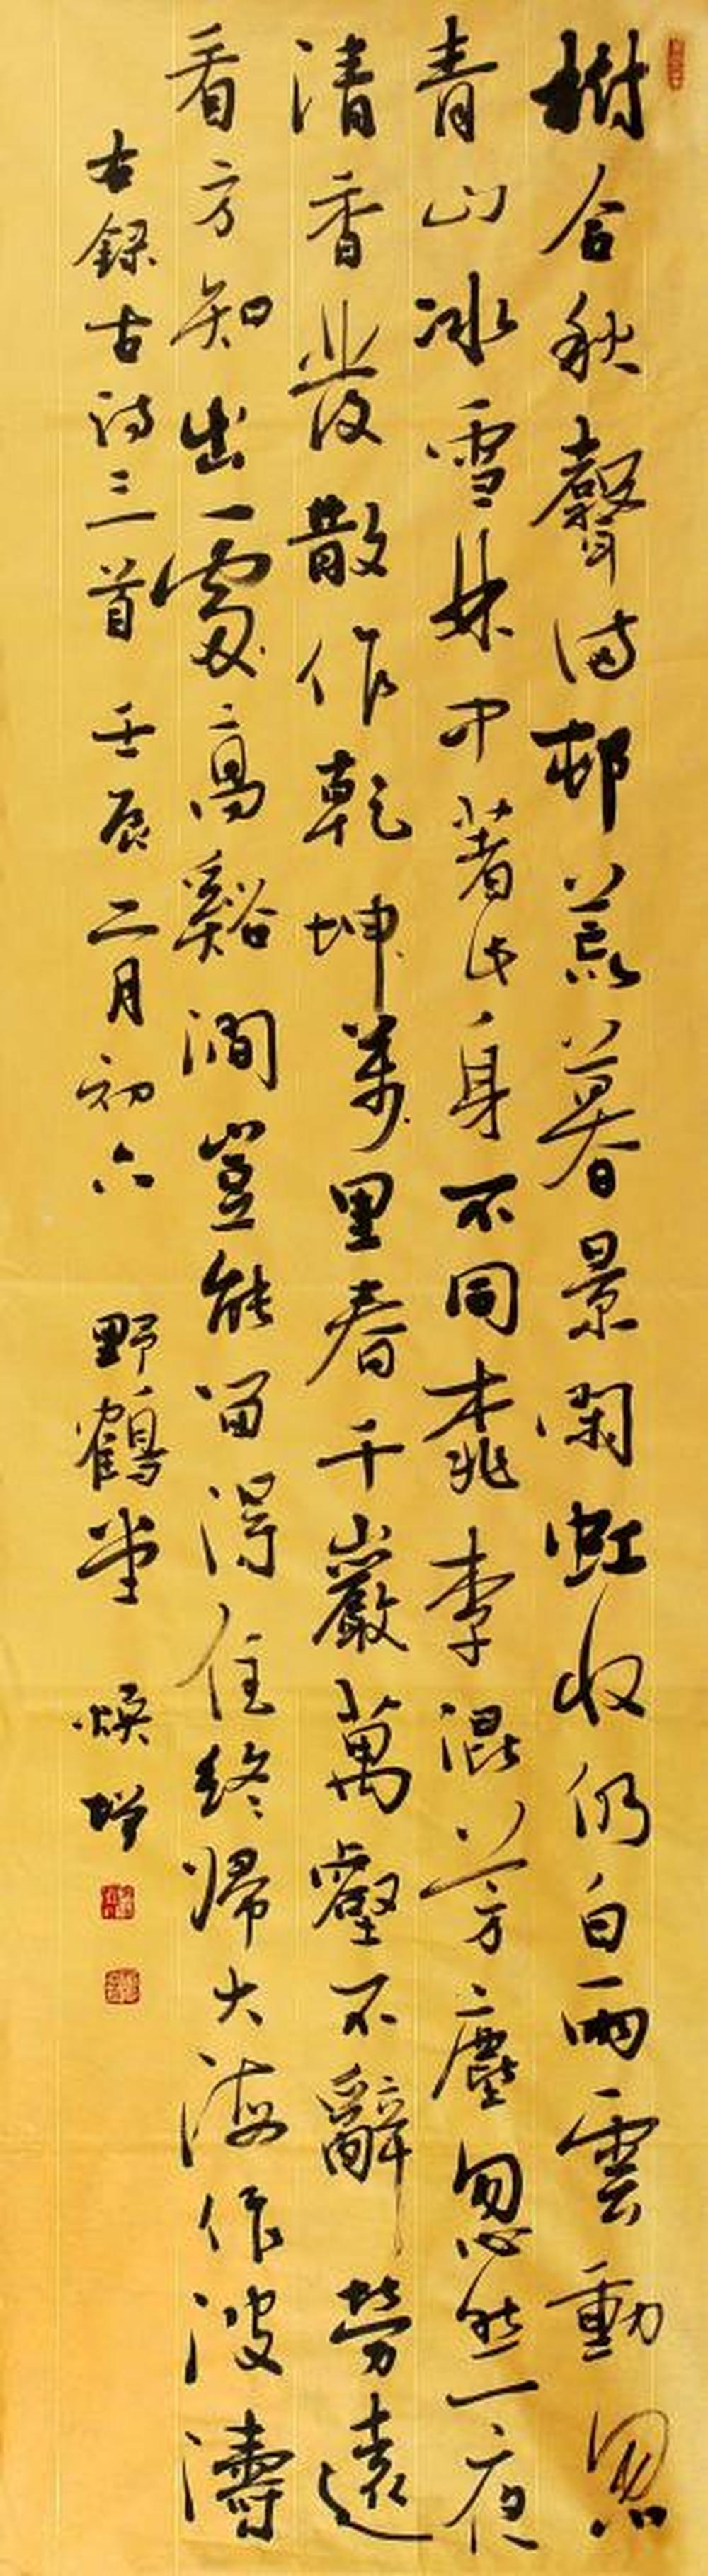 樹合秋聲滿邨荒暮景閑虹收仍白雨雲動忽
青山冰雪林中著此身不同桃李混芳塵忽然一夜
清香發散作乾坤萬里春千巖萬壑不辭勞遠
看方知出一處高谿澗豈能留得住終歸大海作波濤
右錄古詩三首 壬辰二月初六 野鶴堂 煥增